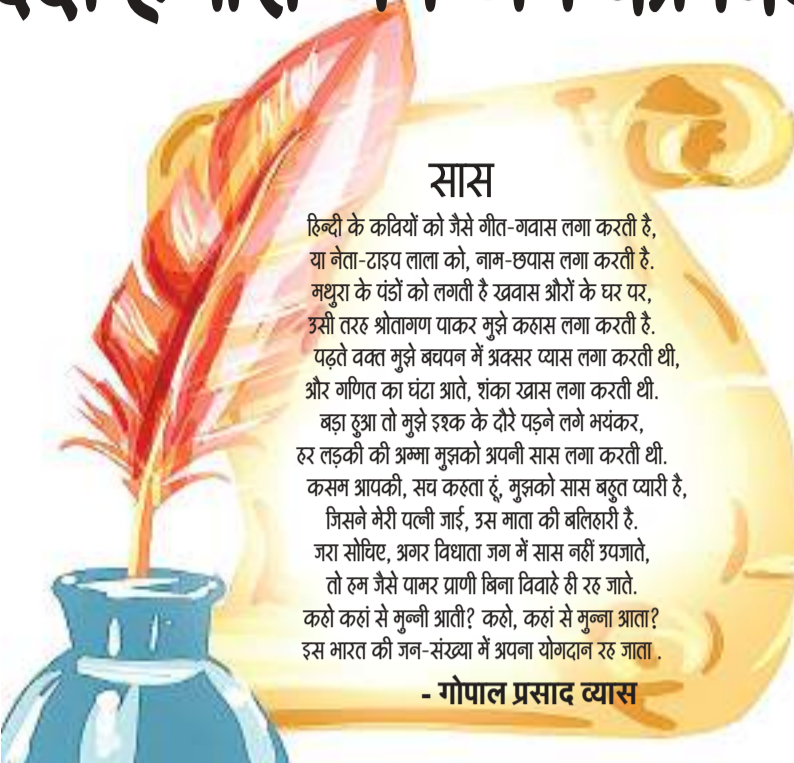 सास
हिन्दी के कवियों को जैसे गीत-गवास लगा करती है,
या नेता-टाइप लाला को, नाम-छपास लगा करती है.
मथुरा के पंडों को लगती है खवास औरों के घर पर,
उसी तरह श्रोतागण पाकर मुझे कहास लगा करती है.
पढ़ते वक्त मुझे बचपन में अक्सर प्यास लगा करती थी,
और गणित का घंटा आते, शंका खास लगा करती थी.
बड़ा हुआ तो मुझे इश्क के दौरे पड़ने लगे भयंकर,
हर लड़की की अम्मा मुझको अपनी सास लगा करती थी.
कसम आपकी, सच कहता हूं, मुझको सास बहुत प्यारी है,
जिसने मेरी पत्नी जाई, उस माता की बलिहारी है.
जरा सोचिए, अगर विधाता जग में सास नहीं उपजाते,
तो हम जैसे पामर प्राणी बिना विवाहे ही रह जाते.
कहो कहां से मुन्नी आती? कहो, कहां से मुन्ना आता?
इस भारत की जन-संख्या में अपना योगदान रह जाता .
- गोपाल प्रसाद व्यास